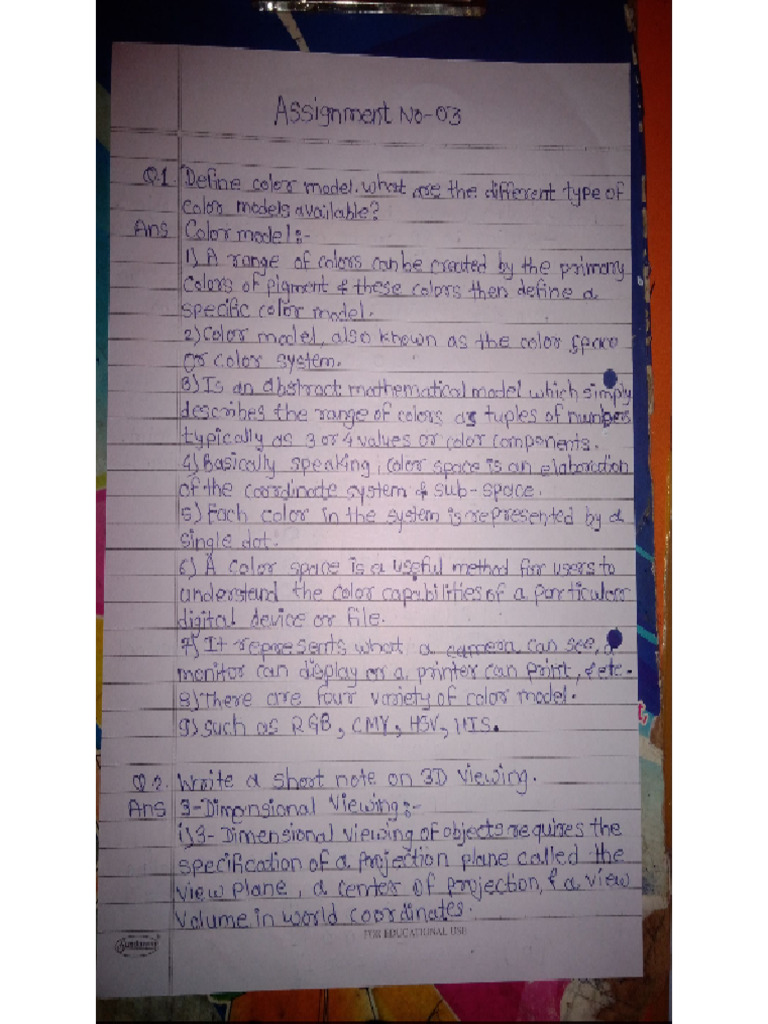 Assignment No-03
Q.1. Define color model. what are the different type of
color models available?
Ans Color model:-
1) A range of colors can be created by the primary
colors of pigment & these colors then define a
specific color model.
2) Color model, also known as the color space
or color system.
3) Is an abstract mathematical model which simply
describes the range of colors as tuples of numbers
typically as 3 or 4 values or color components.
4) Basically speaking, color space is an elaboration
of the coordinate system & sub-space.
5) Each color in the system is represented by a
single dot.
6) A color space is a useful method for users to
understand the color capabilities of a particular
digital device or file.
7) It represents what a camera can see, a
monitor can display or a printer can print, & etc.
8) There are four variety of color model.
9) Such as RGB, CMY, HSV, HIS.
Q.2. Write a short note on 3D viewing.
Ans 3-Dimensional Viewing:-
1) 3-Dimensional viewing of objects requires the
specification of a projection plane called the
view plane, a center of projection, & a view
volume in world coordinates.
Sundaram
FOR EDUCATIONAL USE